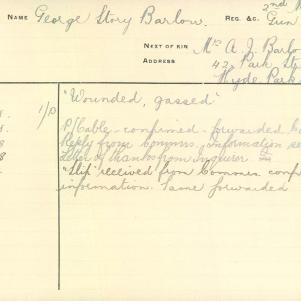 NAME George Story Barlow. REG. &C. 2nd
Gun
NEXT OF KIN Mrs A. J. Barlo
ADDRESS 42, Park St
Hyde Park
1/P "Wounded, gassed"
P/Cable - confirmed - forwarded
Reply from Commrs. information se
Letter of thanks from Inquirer
8 "Slip" received from Commrs conf
information. Same forwarded